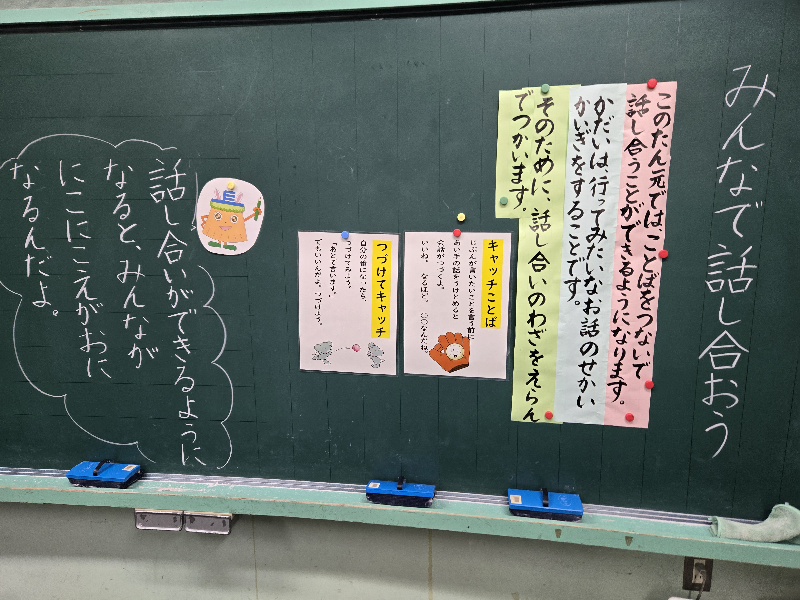 みんなで話し合おう
このたん元では、ことばをつないで
話し合うことができるようになります。
かだいは、行ってみたいなお話のせかい
かいぎをすることです。
そのために、話し合いのわざをえらん
でつかいます。
キャッチことば
じぶんが言いたいことを言う前に
あい手の話をうけとめると
会話がつづくよ。
いいね。 なるほど。 〇〇なんだね。
つづけてキャッチ
つづけてみよう。
自分の番になったら、
「あとで言います。」
でもいいんだよ。つづけよう。
話し合いができるように
なると、みんなが
にこにこえがおに
なるんだよ。